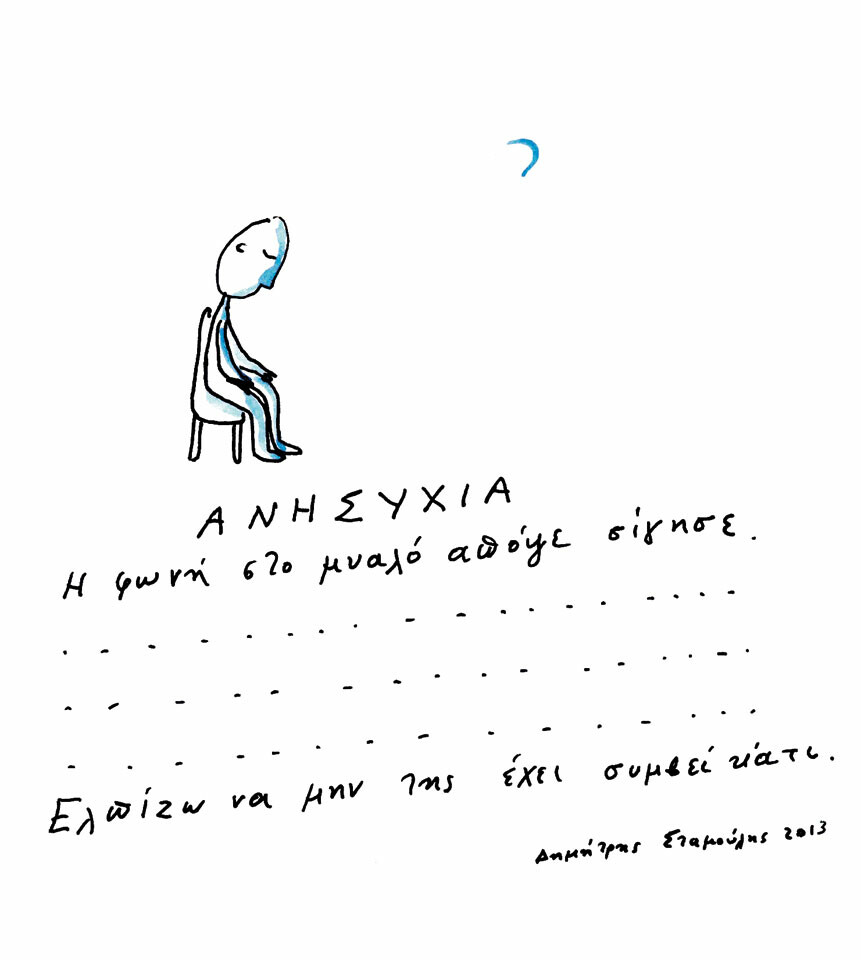 ΑΝΗΣΥΧΙΑ
Η φωνή στο μυαλό απόψε σίγησε.
. . . . . . . . . . . . . . . . . .
. . . . . . . . . . . . . . . . .
. . . . . . . . . . . . . . . .
Ελπίζω να μην της έχει συμβεί κάτι.
Δημήτρης Σταμούλης 2013